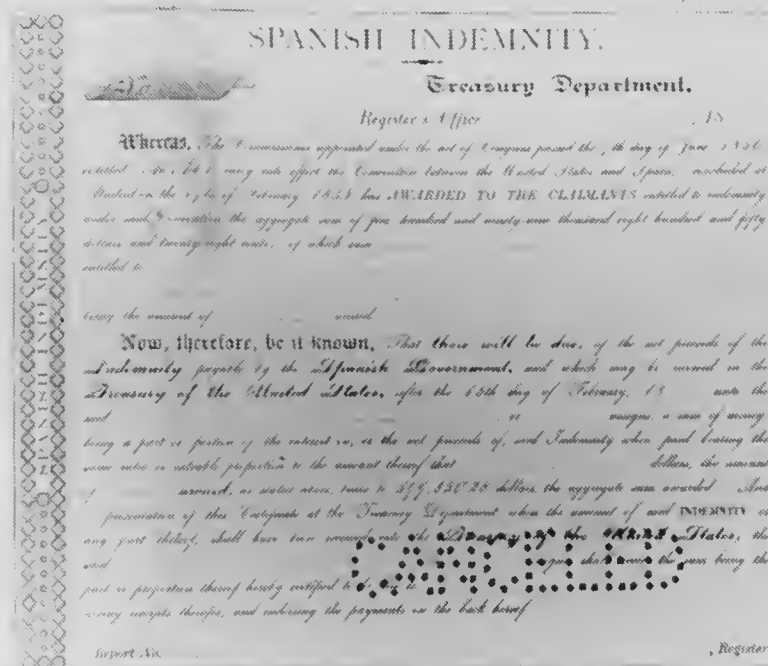 SPANISH INDEMNITY.
Treasury Department.
Register's Office , 18
Whereas, The Commissioners appointed under the act of Congress passed the th day of June 1836
entitled An Act to carry into effect the Convention between the United States and Spain, concluded at
Madrid on the 17th of February 1834 has AWARDED TO THE CLAIMANTS entitled to indemnity
under said Convention the aggregate sum of five hundred and ninety-nine thousand eight hundred and fifty
dollars and twenty-eight cents, of which sum
entitled to
being the amount of award.
Now, therefore, be it known, That there will be due, of the net proceeds of the
Indemnity payable by the Spanish Government, and which may be received in the
Treasury of the United States, after the 15th day of February, 18 unto the
said or assigns, a sum of money
being a part or portion of the interest on, or the net proceeds of, said Indemnity when paid bearing the
same ratio or rateable proportion to the amount thereof that dollars, the amount
of award, as stated above, bears to 599,850.28 dollars, the aggregate sum awarded And
presentation of this Certificate at the Treasury Department when the amount of said INDEMNITY or
any part thereof, shall have been received into the Treasury of the United States, the
said assigns shall receive the sum being the
part or proportion thereof hereby certified to be due to
giving receipts therefor, and endorsing the payments on the back hereof
CANCELLED
Report No. , Register
SPANISH INDEMNITY